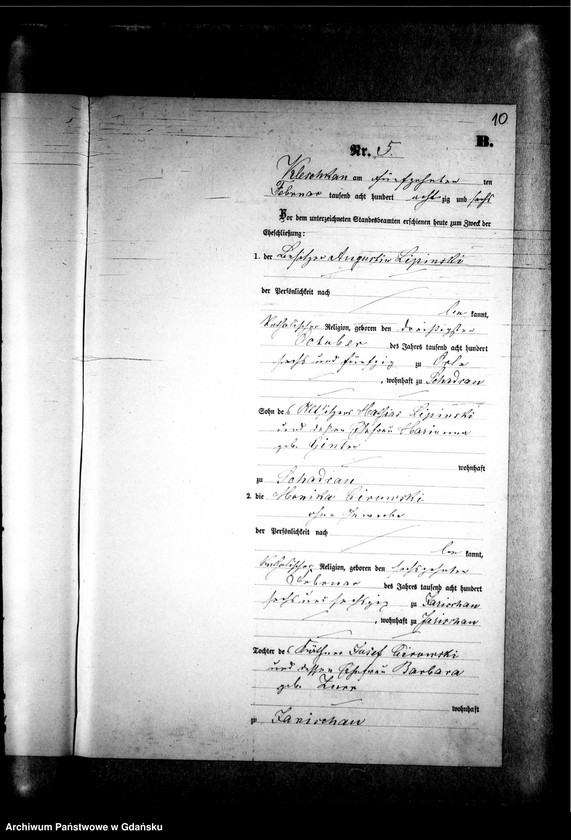 10
B.
Nr. 5.
Kleschkau am fünfzehnten ten
Februar tausend acht hundert achtzig und sechs
Vor dem unterzeichneten Standesbeamten erschienen heute zum Zweck der
Eheschließung:
1. der Besitzer Augustin Lipinski
der Persönlichkeit nach
be kannt,
katholischer Religion, geboren den dreißigsten
October des Jahres tausend acht hundert
sechs und fünfzig zu Orle
, wohnhaft zu Schadrau
Sohn des Altsitzers Mathias Lipinski
und dessen Ehefrau Marianna
geb. Ginter
wohnhaft
zu Schadrau
2. die Monika Cirowski
ohne Gewerbe
der Persönlichkeit nach
be kannt,
katholischer Religion, geboren den sechszehnten
Februar des Jahres tausend acht hundert
sechs und sechszig zu Jarischau
, wohnhaft zu Jarischau
Tochter des Käthner Josef Cirowski
und dessen Ehefrau Barbara
geb.
wohnhaft
zu Jarischau
Archiwum Państwowe w Gdańsku